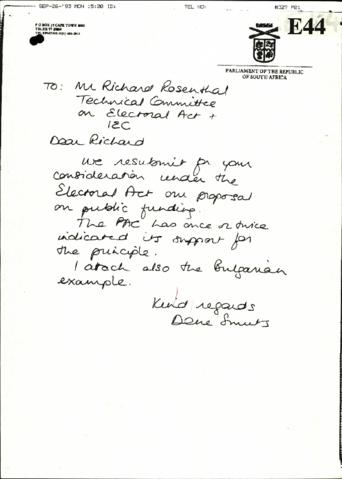 SEP-26-'93 MON 15:00 ID:
TEL NO:
P O BOX 15 CAPE TOWN 8000
E44
PARLIAMENT OF THE REPUBLIC
OF SOUTH AFRICA
TO: Mr Richard Rosenthal
Technical Committee
on Electoral Act +
IEC
Dear Richard
We resubmit for your
consideration under the
Electoral Act our proposal
on public funding.
The PAC has once or twice
indicated its support for
the principle.
I attach also the Bulgarian
example.
Kind regards
Dene Smuts